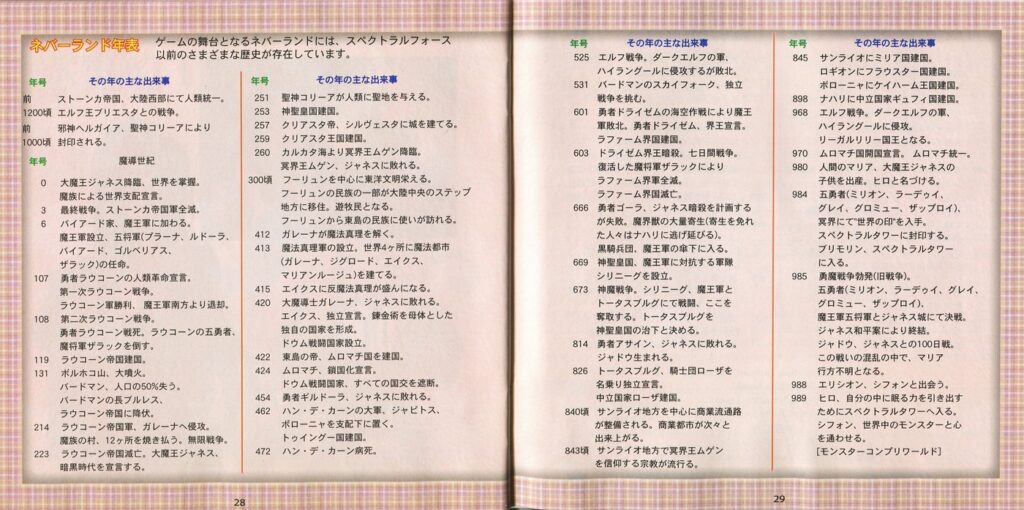 ネバーランド年表
ゲームの舞台となるネバーランドには、スペクトラルフォース
以前のさまざまな歴史が存在しています。
年号 その年の主な出来事
前 ストーンカ帝国、大陸西部にて人類統一。
1200頃 エルフ王ブリエスタとの戦争。
前 邪神ヘルガイア、聖神コリーアにより
1000頃 封印される。
年号 魔導世紀
0 大魔王ジャネス降臨、世界を掌握。
魔族による世界支配宣言。
3 最終戦争。ストーンカ帝国軍全滅。
6 バイアード家、魔王軍に加わる。
魔王軍設立、五将軍(ブラーナ、ルドーラ、
バイアード、ゴルベリアス、
ザラック)の任命。
107 勇者ラウコーンの人類革命宣言。
第一次ラウコーン戦争。
ラウコーン軍勝利、魔王軍南方より退却。
108 第二次ラウコーン戦争。
勇者ラウコーン戦死。ラウコーンの五勇者、
魔将軍ザラックを倒す。
119 ラウコーン帝国建国。
131 ボルホコ山、大噴火。
バードマン、人口の50%失う。
バードマンの長ブルレス、
ラウコーン帝国に降伏。
214 ラウコーン帝国軍、ガレーナへ侵攻。
魔族の村、12ヶ所を焼き払う。無限戦争。
223 ラウコーン帝国滅亡。大魔王ジャネス、
暗黒時代を宣言する。
年号 その年の主な出来事
251 聖神コリーアが人類に聖地を与える。
253 神聖皇国建国。
257 クリアスタ帝、シルヴェスタに城を建てる。
259 クリアスタ王国建国。
260 カルカタ海より冥界王ムゲン降臨。
冥界王ムゲン、ジャネスに敗れる。
300頃 フーリュンを中心に東洋文明栄える。
フーリュンの民族の一部が大陸中央のステップ
地方に移住。遊牧民となる。
フーリュンから東島の民族に使いが訪れる。
412 ガレーナが魔法真理を解く。
413 魔法真理軍の設立。世界4ヶ所に魔法都市
(ガレーナ、ジグロード、エイクス、
マリアンルージュ)を建てる。
415 エイクスに反魔法真理が盛んになる。
420 大魔導士ガレーナ、ジャネスに敗れる。
エイクス、独立宣言。錬金術を母体とした
独自の国家を形成。
ドウム戦闘国家設立。
422 東島の帝、ムロマチ国を建国。
424 ムロマチ、鎖国化宣言。
ドウム戦闘国家、すべての国交を遮断。
454 勇者ギルドーラ、ジャネスに敗れる。
462 ハン・デ・カーンの大軍、ジャピトス、
ポローニャを支配下に置く。
トゥイング一国建国。
472 ハン・デ・カーン病死。
28
年号 その年の主な出来事
525 エルフ戦争。ダークエルフの軍、
ハイラングールに侵攻するが敗北。
531 バードマンのスカイフォーク、独立
戦争を挑む。
601 勇者ドライゼムの海空作戦により魔王
軍敗北。勇者ドライゼム、界王宣言。
ラファーム界国建国。
603 ドライゼム界王暗殺。七日間戦争。
復活した魔将軍ザラックにより
ラファーム界軍全滅。
ラファーム界国滅亡。
666 勇者ゴーラ、ジャネス暗殺を計画する
が失敗。魔界獣の大量寄生(寄生を免れ
た人々はナハリに逃げ延びる)。
黒騎兵団、魔王軍の傘下に入る。
669 神聖皇国、魔王軍に対抗する軍隊
シリニーグを設立。
673 神魔戦争。シリニーグ、魔王軍と
トータスブルグにて戦闘、ここを
奪取する。トータスブルグを
神聖皇国の治下と決める。
814 勇者アサイン、ジャネスに敗れる。
ジャドウ生まれる。
826 トータスブルグ、騎士団ローザを
名乗り独立宣言。
中立国家ローザ建国。
840頃 サンライオ地方を中心に商業流通路
が整備される。商業都市が次々と
出来上がる。
843頃 サンライオ地方で冥界王ムゲン
を信仰する宗教が流行る。
年号 その年の主な出来事
845 サンライオにミリア国建国。
ロギオンにフラウスター国建国。
ポローニャにケイハーム王国建国。
898 ナハリに中立国家ギュフィ国建国。
968 エルフ戦争。ダークエルフの軍、
ハイラングールに侵攻。
リーガルリリー国王となる。
970 ムロマチ国開国宣言。ムロマチ統一。
980 人間のマリア、大魔王ジャネスの
子供を出産。ヒロと名づける。
984 五勇者(ミリオン、ラーデゥイ、
グレイ、グロミュー、ザップロイ)、
冥界にて"世界の印"を入手。
スペクトラルタワーに封印する。
プリモリン、スペクトラルタワー
に入る。
985 勇魔戦争勃発(旧戦争)。
五勇者(ミリオン、ラーデゥイ、グレイ、
グロミュー、ザップロイ)、
魔王軍五将軍とジャネス城にて決戦。
ジャネス和平案により終結。
ジャドウ、ジャネスとの100日戦。
この戦いの混乱の中で、マリア
行方不明となる。
988 エリシオン、シフォンと出会う。
989 ヒロ、自分の中に眠る力を引き出す
ためにスペクトラルタワーへ入る。
シフォン、世界中のモンスターと心
を通わせる。
[モンスターコンプリワールド]
29